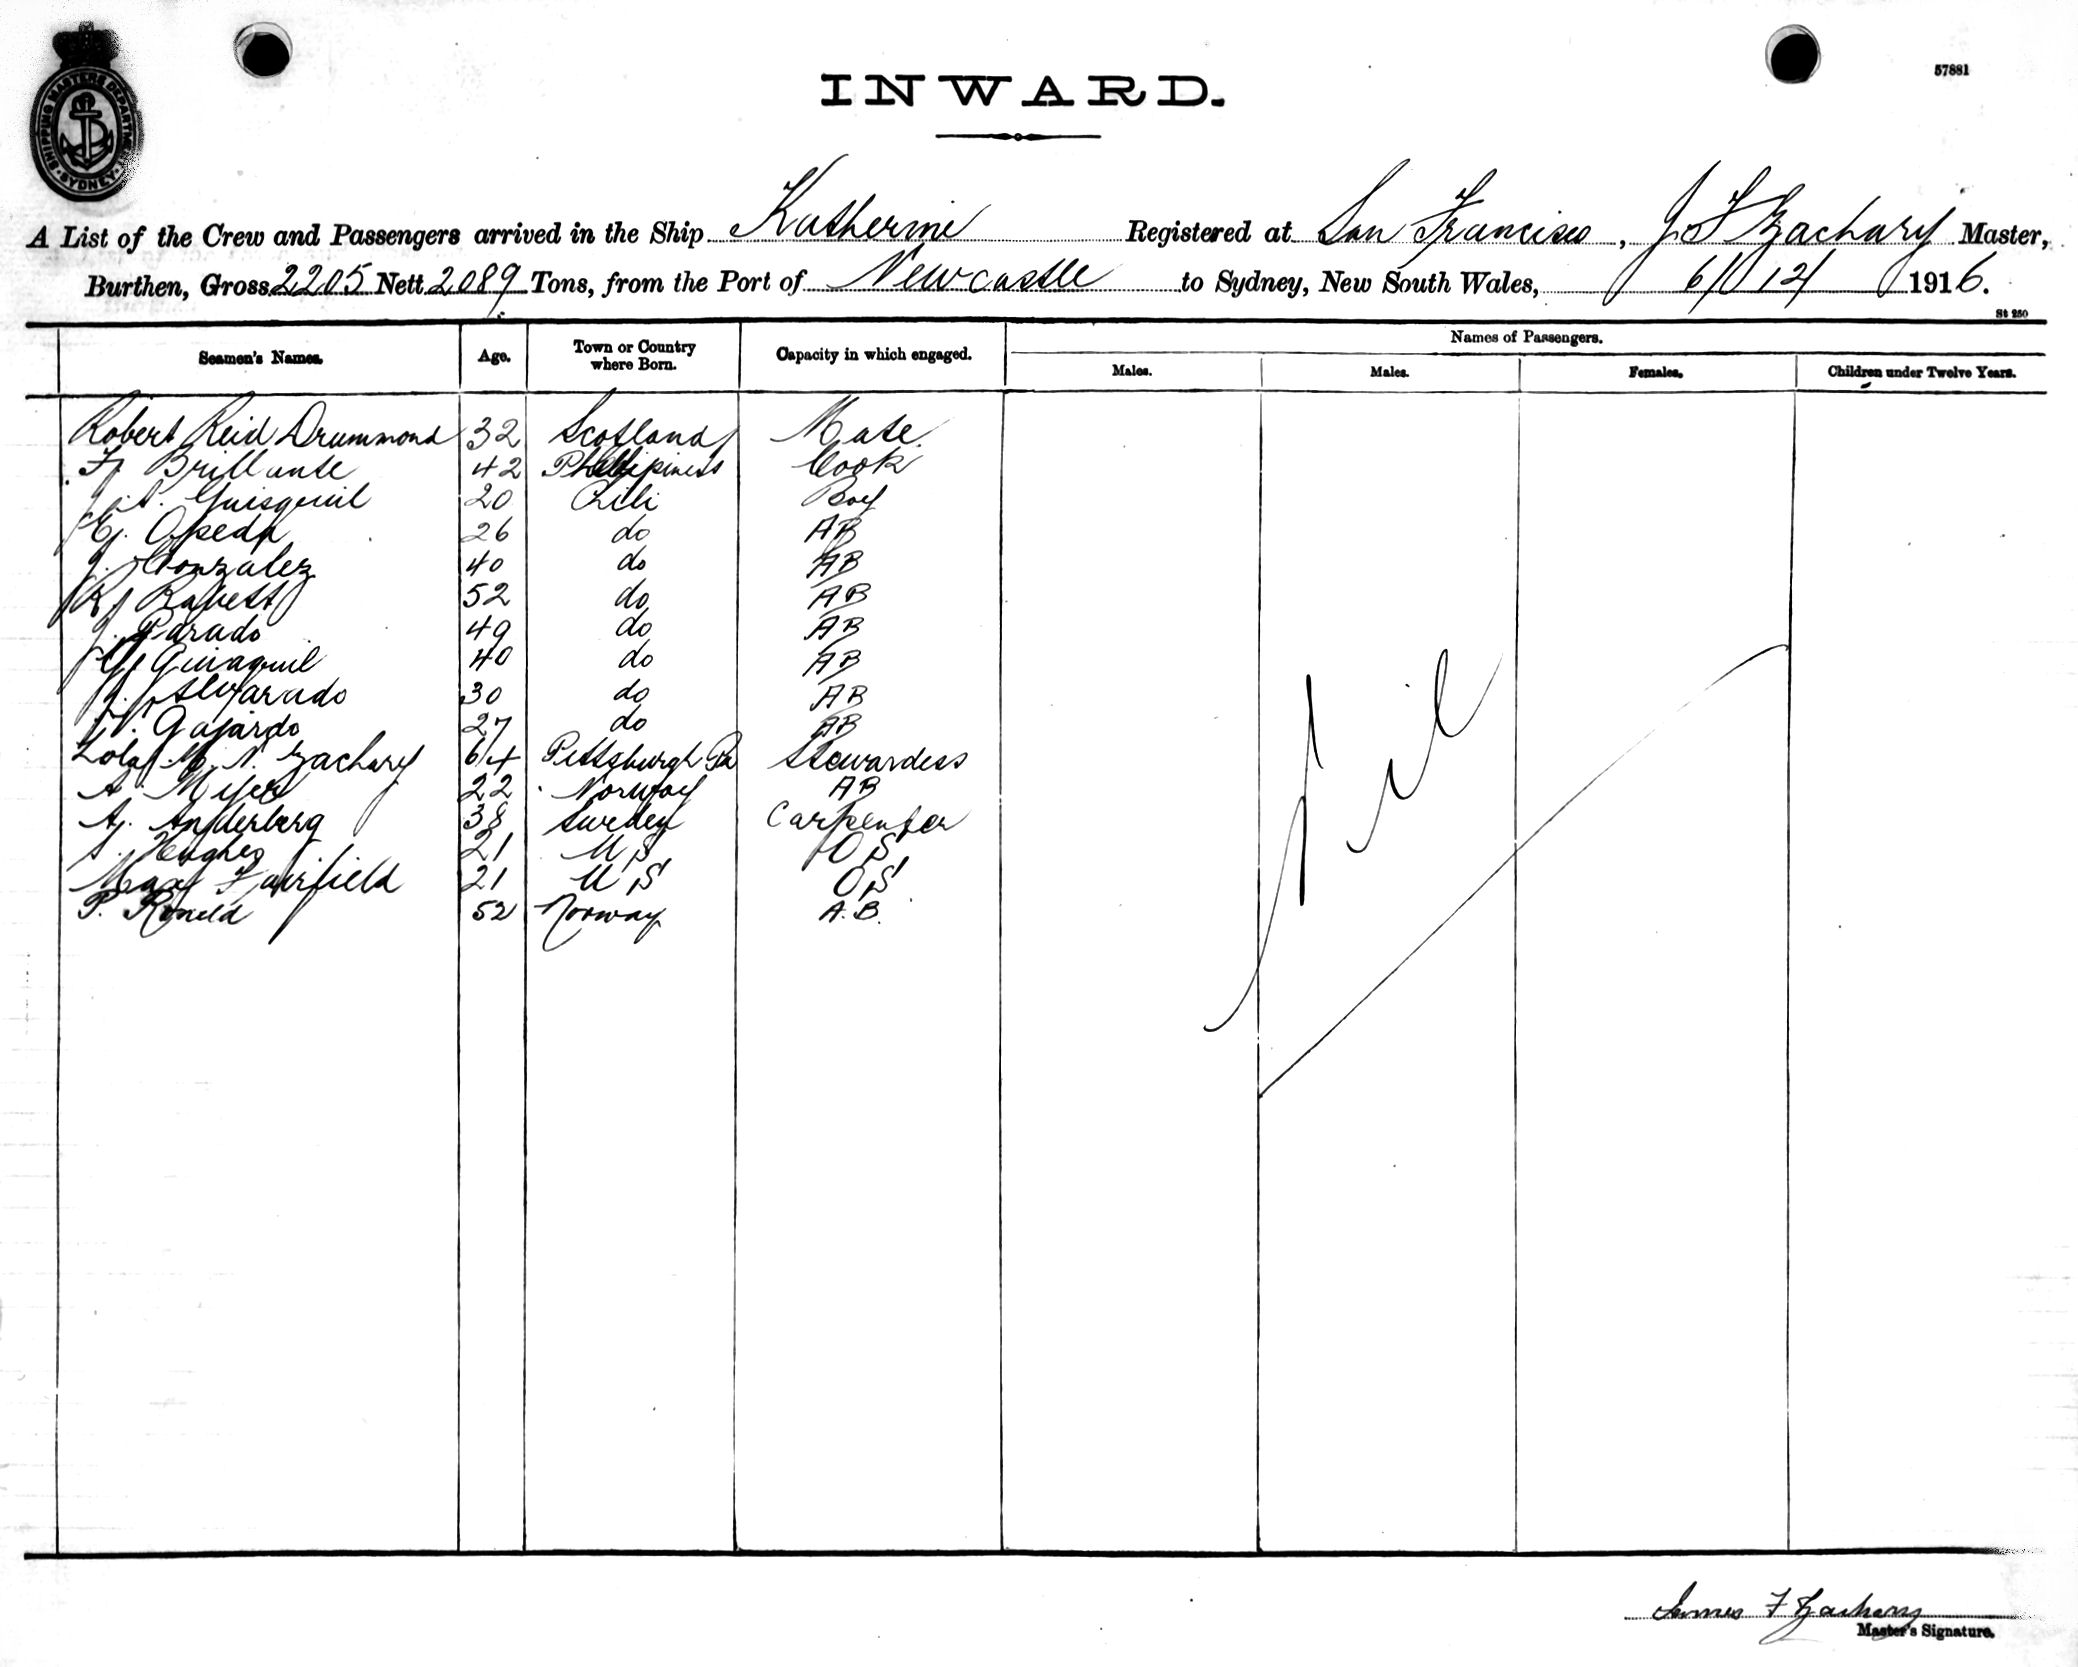 SHIPPING MASTERS DEPARTMENT
SYDNEY
57881
INWARD.
A List of the Crew and Passengers arrived in the Ship Katherine Registered at San Francisco, J F Zachary Master,
Burthen, Gross 2205 Nett 2089 Tons, from the Port of Newcastle to Sydney, New South Wales, 6/12/1916.
St 250
Seamen's Names. Age. Town or Country where Born. Capacity in which engaged. Names of Passengers.
Males. Males. Females. Children under Twelve Years.
Robert Reid Drummond 32 Scotland Mate
F. Brillante 42 Cook
20 Chili Boy
26 do AB
J. Gonzalez 40 do AB
52 do AB
J. Parado 49 do AB
40 do AB
Alvarado 30 do AB
Gajardo 27 do AB
Lola M. N. Zachary 64 Pittsburgh Pa Stewardess
A. Myer 22 Norway AB
A. Anderberg 38 Sweden Carpenter
S. Hughes 21 U S O S
Max Fairfield 21 U S O S
P. 52 Norway A.B.
Nil
James F Zachary
Master's Signature.